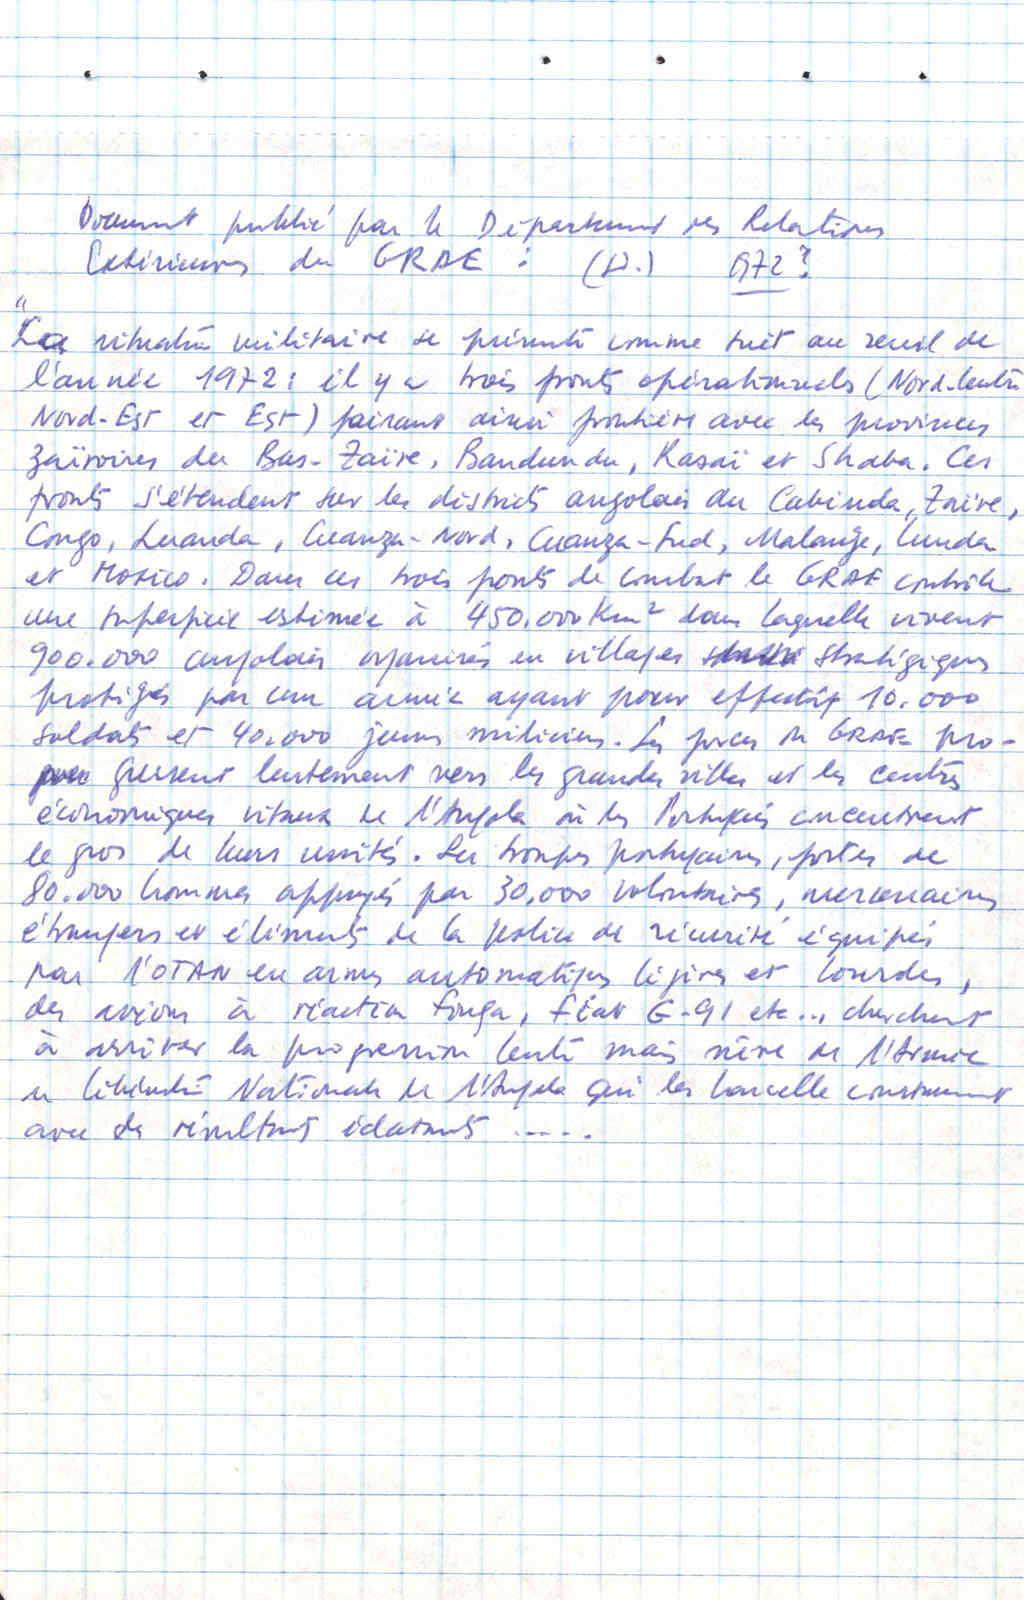 Document publié par le Département des Relations
Extérieures du GRAE : (D.) 1972 ?
"La situation militaire se présente comme suit au seuil de
l'année 1972 : il y a trois fronts opérationnels (Nord-Centre
Nord-Est et Est) faisant ainsi frontière avec les provinces
zaïroises du Bas-Zaïre, Bandundu, Kasaï et Shaba. Ces
fronts s'étendent sur les districts angolais du Cabinda, Zaire,
Congo, Luanda, Cuanza-Nord, Cuanza-Sud, Malanje, Lunda
et Moxico. Dans ces trois fronts de combat le GRAE contrôle
une superficie estimée à 450.000 Km² dans laquelle vivent
900.000 angolais organisés en villages stratégiques
protégés par une armée ayant pour effectif 10.000
soldats et 40.000 jeunes miliciens. Les forces du GRAE pro-
gressent lentement vers les grandes villes et les centres
économiques vitaux de l'Angola où les Portugais concentrent
le gros de leurs unités. Les troupes portugaises, fortes de
80.000 hommes appuyés par 30.000 volontaires, mercenaires
étrangers et éléments de la police de sécurité équipés
par l'OTAN en armes automatiques légères et lourdes,
des avions à réaction Fouga, Fiat G-91 etc... cherchent
à arrêter la progression lente mais sûre de l'Armée
de Libération Nationale de l'Angola qui les harcelle constamment
avec des résultats éclatants .....